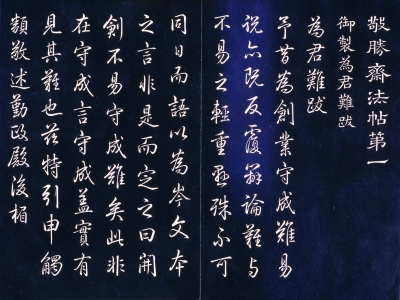 敬勝齋法帖第一
御製為君難跋
為君難跋
予昔為創業守成難易
說亦既反覆辨論難与
不易之輕重懸殊不可
同日而語以為岑文本
之言非是而定之曰開
創不易守成難矣此非
在守成言守成蓋實有
見其難也茲特引申觸
類敬述勤政殿後楣